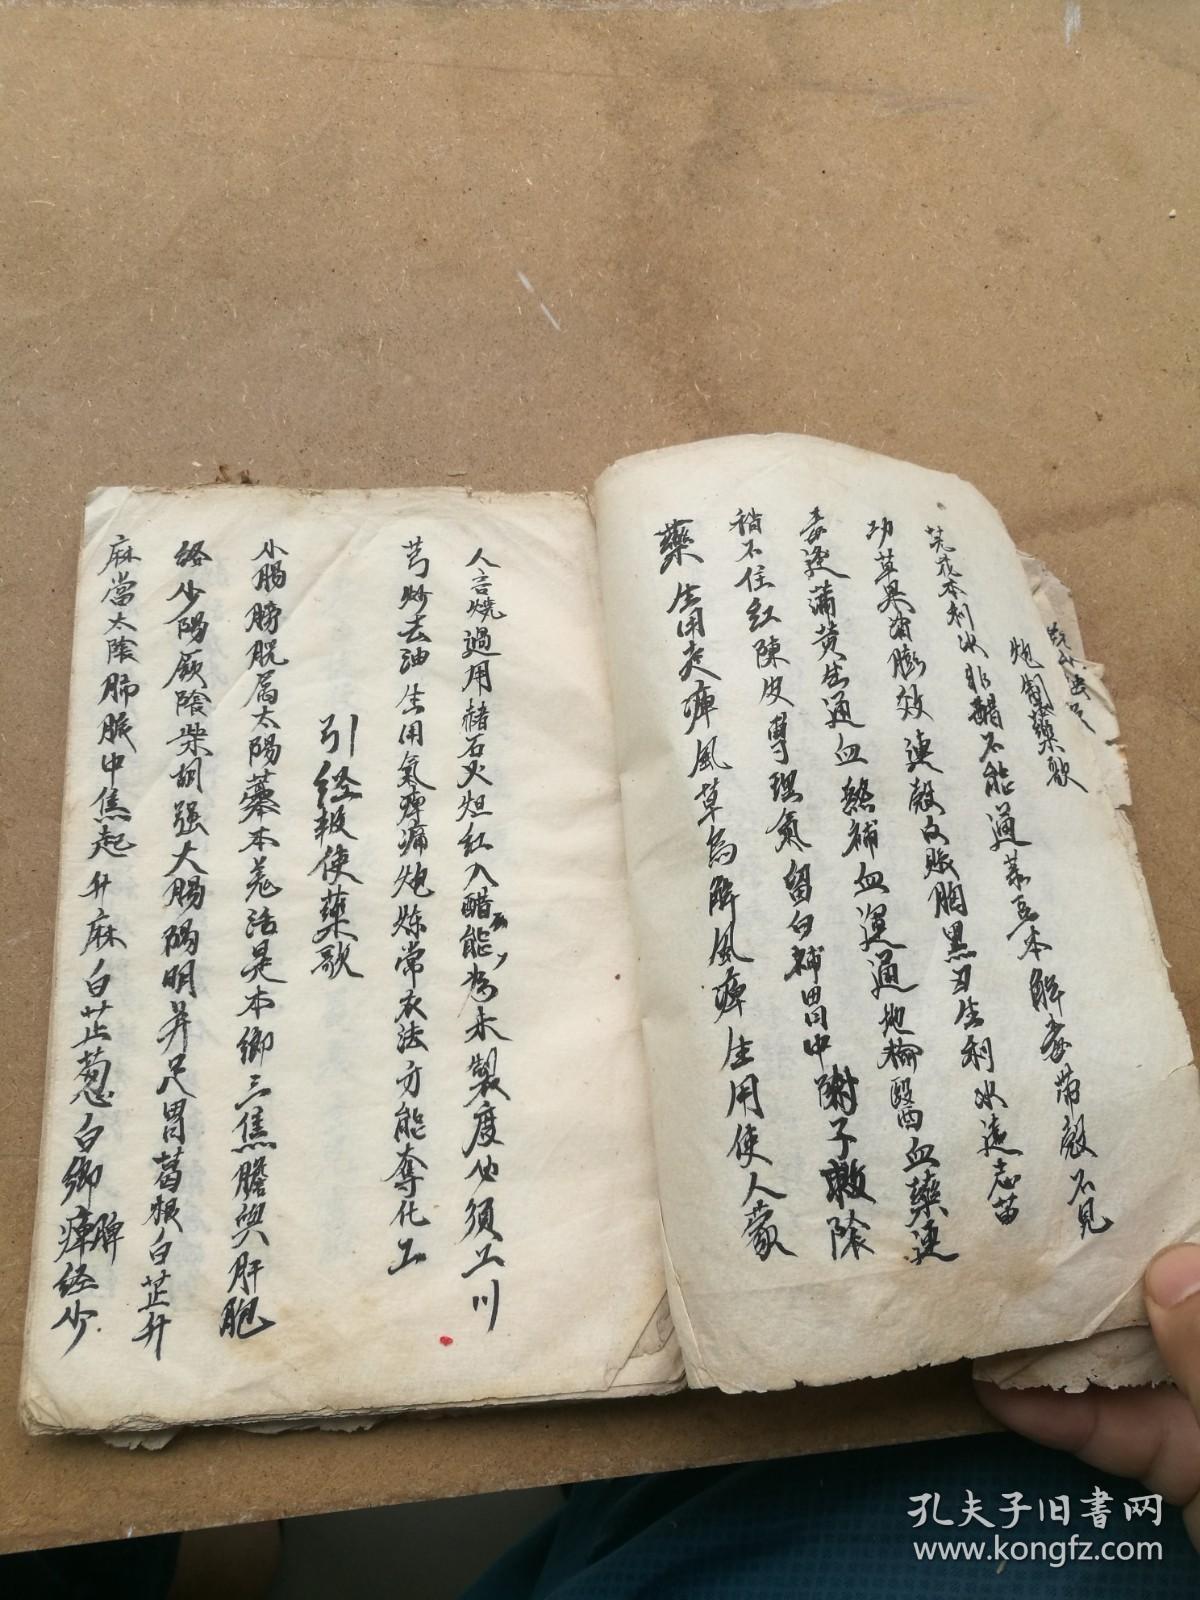 炮製藥歌
芫花本利水非醋不能通菉豆本解毒帶殼不見
功草果消膨效連殼反脹胸黑丑生利水遠志苗
毒逢蒲黄生通血熟補血運通地榆醫血藥連
稍不住紅陳皮專理氣留白補胃中附子救陰
藥生用走痺風草烏解風痺生用使人蒙
人言燒過用赭石火煅紅入醋能為末製度必須工川
芎炒去油生用氣痺痛炮煉常衣法方能奪化工
引經報使藥歌
小腸膀胱属太陽藁本羌活是本鄉三焦膽與肝胞
絡少陽厥陰柴胡强大腸陽明并足胃葛根白芷升
麻當太陰肺脈中焦起升麻白芷葱白鄉痺脾經少
孔夫子旧書网
www.kongfz.com